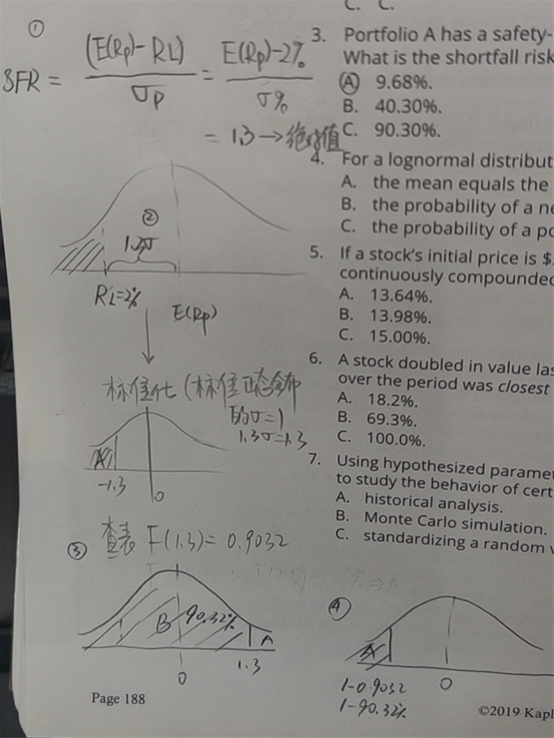 C. C.
①
SFR = (E(Rp) - RL) / σp = E(Rp) - 2% / σ%
= 1.3 → 绝对值
②
1.3σ
RL=2%
E(Rp)
标准化 (标准正态分布
的σ=1
1.3σ=1.3
A
-1.3
0
③ 查表 F(1.3) = 0.9032
B 90.32% A
0
1.3
④
A
1-0.9032
0
1-90.32%
3. Portfolio A has a safety-
What is the shortfall risk
A 9.68%.
B. 40.30%.
C. 90.30%.
4. For a lognormal distribut
A. the mean equals the
B. the probability of a ne
C. the probability of a po
5. If a stock's initial price is $
continuously compounded
A. 13.64%.
B. 13.98%.
C. 15.00%.
6. A stock doubled in value las
over the period was closest
A. 18.2%.
B. 69.3%.
C. 100.0%.
7. Using hypothesized parame
to study the behavior of cert
A. historical analysis.
B. Monte Carlo simulation.
C. standardizing a random v
Page 188
©2019 Kapl